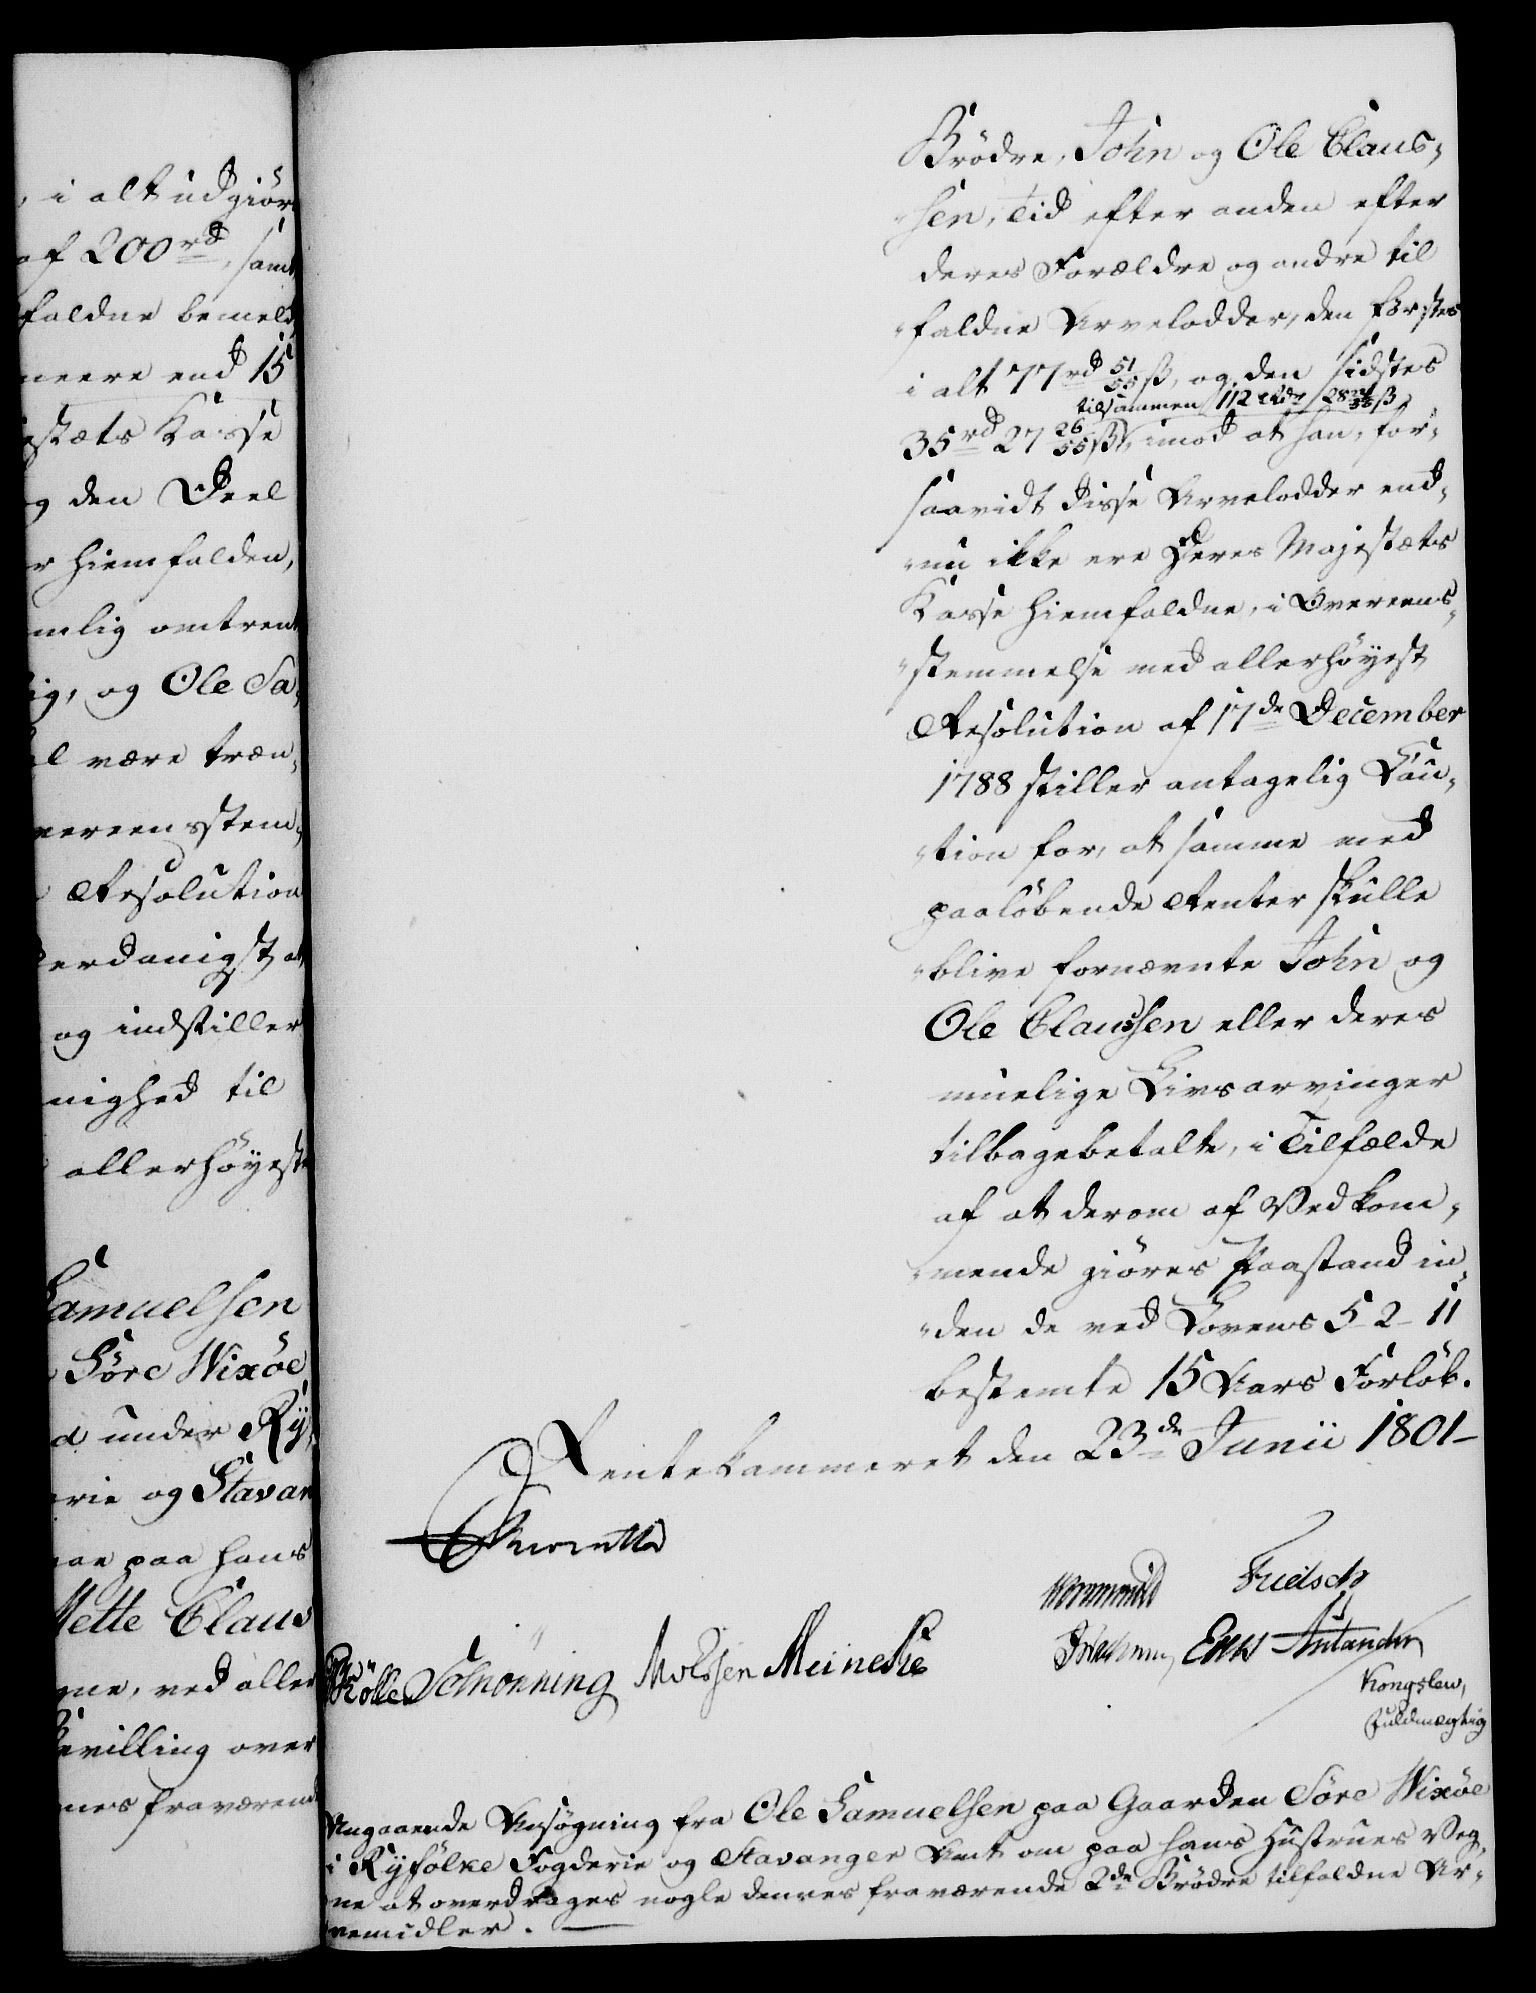 i alt udgiør
af 200 rd, samt
faldne bemeld
meere end 15
estæts Kasse
g den Deel
r hiemfalden,
mlig omtrent
ig, og Ole Sa-
l være træn-
vereensstem-
Resolution
derdanigst at
og indstiller
nighed til
allerhöyeste
Samuelsen
Söre Wixöe
d under Ry-
erie og Stavan
paa hans
Mette Claus
gne, ved aller
Bevilling over
nes fraværend
Brödre, John og Ole Claus-
sen, Tid efter anden efter
deres Forældre og andre til
faldne Arvelodder, den förstes
i alt 77 rd 51/55 ß, og den sidstes
tilsammen 112 Rdr 28 22/55 ß
35 rd 27 26/55 ß, imod at han, for-
saavidt disse Arvelodder end-
nu ikke ere Deres Majestæts
Kasse hiemfaldne, i Overeens-
stemmelse med allerhöyest
Resolution af 17de December
1788 stiller antagelig Cau-
tion for, at samme med
paalöbende Renter skulle
blive fornævnte John og
Ole Claussen eller deres
muelige Livsarvinger
tilbagebetalte, i Tilfælde
af at derom af Vedkom-
mende giöres Paastand in-
den de ved Lovens 5-2-11
bestemte 15 Aars Forlöb.
Rentekammeret den 23de Junii 1801-
Reventlow
Wormskiold Frelsch
Schönning Molssen Meinecke
Kongslew,
Fuldmægtig
Angaaende Ansögning fra Ole Samuelsen paa Gaarden Söre Wixöe
i Ryfölke Fogderie og Stavanger Amt om paa hans Hustrues Veg-
ne at overdrages nogle dennes fraværende 2de Brödre tilfaldne Ar-
vemidler.